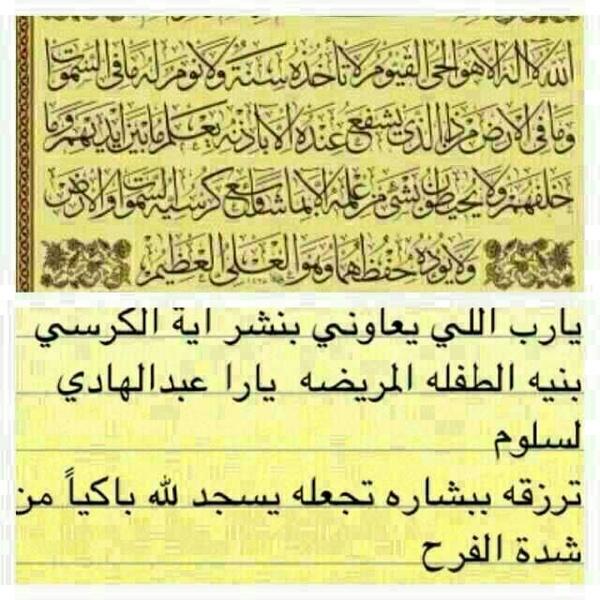 الله لا اله الا هو الحي القيوم لا تأخذه سنة ولا نوم له ما في السموات
وما في الارض من ذا الذي يشفع عنده الا باذنه يعلم ما بين ايديهم وما
خلفهم ولا يحيطون بشيء من علمه الا بما شاء وسع كرسيه السموات والارض
ولا يوده حفظهما وهو العلي العظيم
يارب اللي يعاوني بنشر اية الكرسي
بنيه الطفله المريضه يارا عبدالهادي
لسلوم
ترزقه ببشاره تجعله يسجد لله باكياً من
شدة الفرح